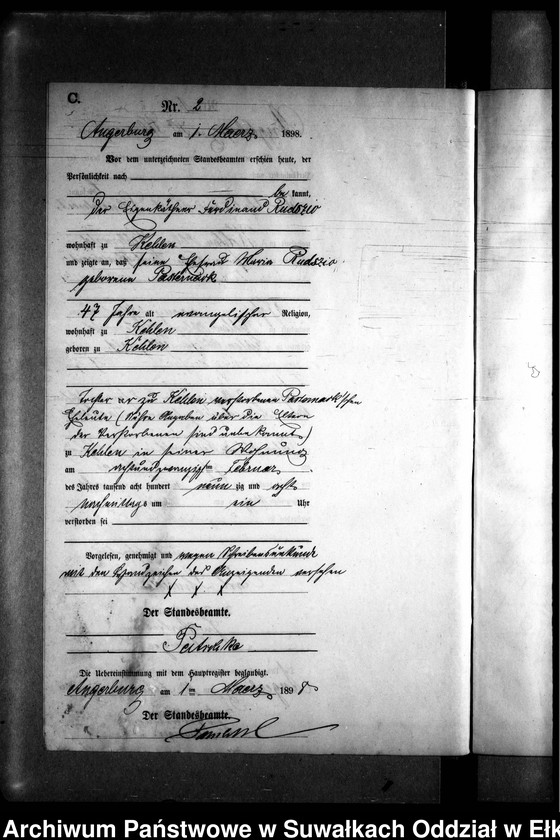 C.
Nr. 2
Angerburg am 1. Maerz 1898.
Vor dem unterzeichneten Standesbeamten erschien heute, der
Persönlichkeit nach
be kannt,
der Eigenkäthner Ferdinand Rudszio
wohnhaft zu Kehlen
und zeigte an, daß seine Ehefrau Maria Rudszio
geborene Pasternack
47 Jahre alt evangelischer Religion,
wohnhaft zu Kehlen
geboren zu Kehlen
Tochter der zu Kehlen verstorbenen
Eheleute (Nähere Angaben über die Eltern
der Verstorbenen sind unbekannt)
zu Kehlen in seiner Wohnung
am achtundzwanzigsten Februar
des Jahres tausend acht hundert neun zig und acht
Nachmittags um ein Uhr
verstorben sei
Vorgelesen, genehmigt und wegen Schreibensunkunde
mit den Handzeichen des Anzeigenden versehen
X X X
Der Standesbeamte.
Die Uebereinstimmung mit dem Hauptregister beglaubigt.
Angerburg am 1ten Maerz 1898
Der Standesbeamte.
Archiwum Państwowe w Suwałkach Oddział w Ełk